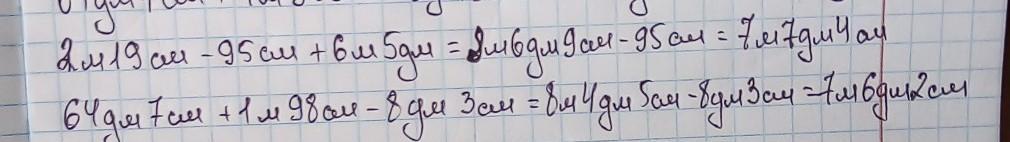 2м19см - 95см + 6м5дм = 8м6дм9см - 95см = 7м7дм4см
64дм7см + 1м98см - 8дм3см = 8м4дм5см - 8дм3см = 7м6дм2см